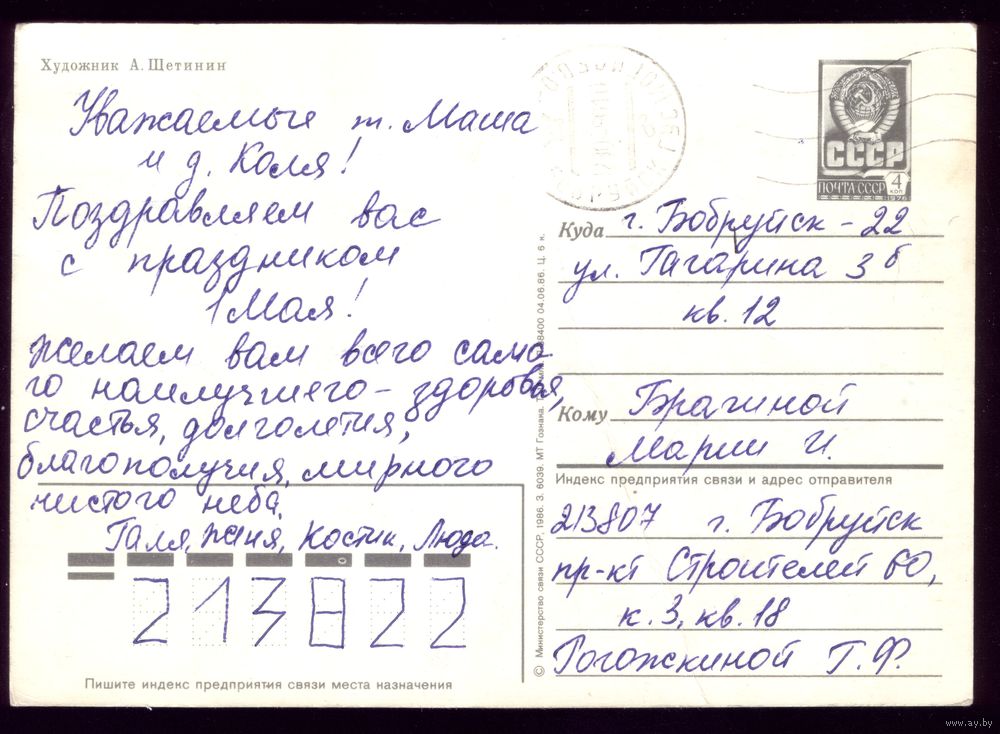 Художник А. Щетинин
Уважаемые т. Маша
и д. Коля!
Поздравляем вас
с праздником
1 Мая!
желаем вам всего само-
го наилучшего - здоровья,
счастья, долголетия,
благополучия, мирного
чистого неба.
Галя, Женя, Костик, Люда.
213822
Пишите индекс предприятия связи места назначения
СССР
ПОЧТА СССР 4 коп
1976
Куда г. Бобруйск - 22
ул. Гагарина 3б
кв. 12
Кому Брагиной
Марии И.
Индекс предприятия связи и адрес отправителя
213807 г. Бобруйск
пр-кт Строителей 60,
к. 3, кв. 18
Рогожкиной Г. Ф.
© Министерство связи СССР, 1986. З. 6039. МТ Гознака. 04.06.86. Ц. 6 к.
www.ay.by